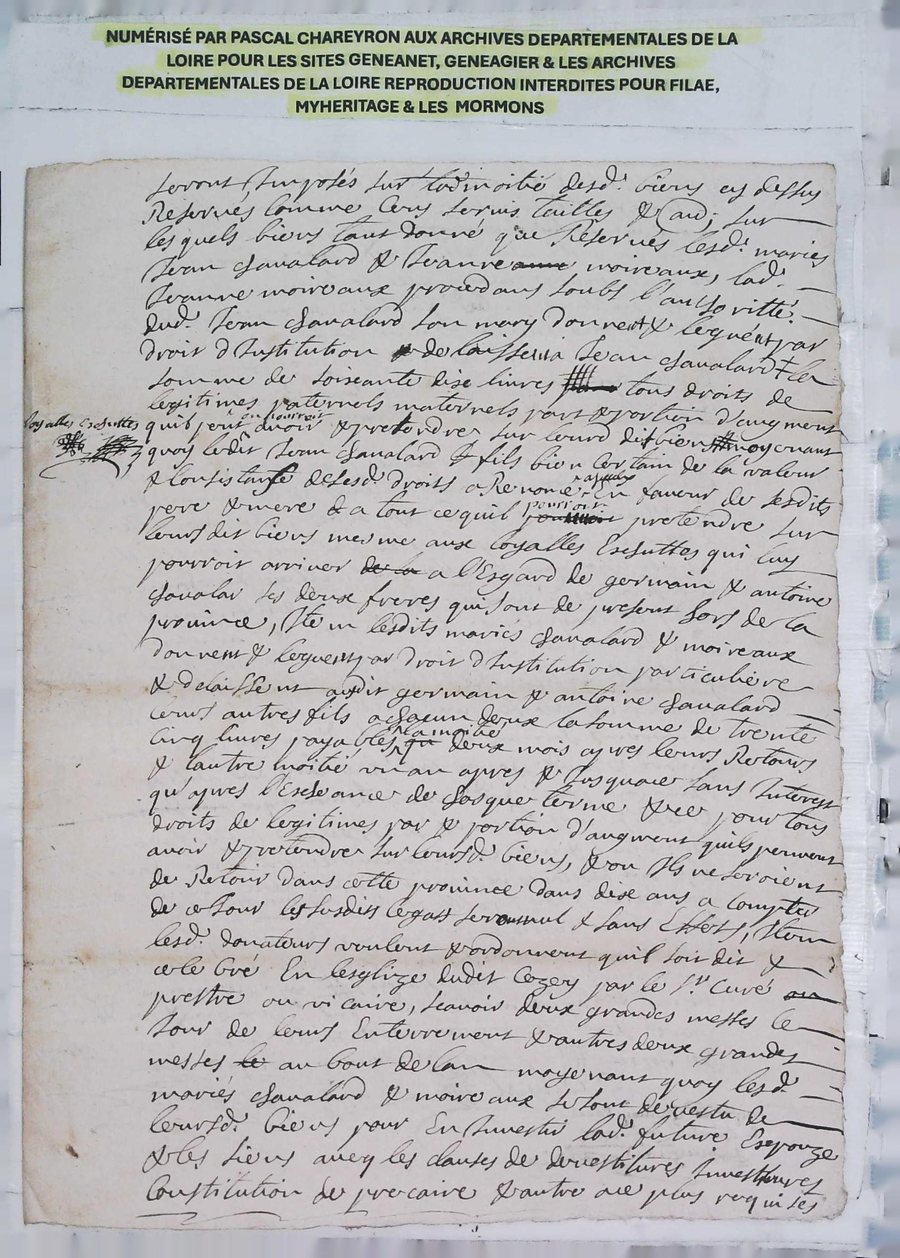 NUMÉRISÉ PAR PASCAL CHAREYRON AUX ARCHIVES DEPARTEMENTALES DE LA
LOIRE POUR LES SITES GENEANET, GENEAGIER & LES ARCHIVES
DEPARTEMENTALES DE LA LOIRE REPRODUCTION INTERDITES POUR FILAE,
MYHERITAGE & LES MORMONS
seront Imposés sur lad. moitié desd. biens cy dessus
Reservés comme Cens servis tailles & au sur
lesquels biens tant donné que Reservés lesd. mariés
Jean Chavalard & Jeanne moireaux, lad.
Jeanne moireaux procedans soubs l'authoritté
dud. Jean Chavalard son mary donnent & leguent par
droit d'Institution & delaissent a Jean Chavalard la
somme de soiseante dise livres tous droits de
legitimes paternels maternels part & portion d'augment
loyalles Eschuttes
quil peut ou pourroit avoir & pretendre sur leurd dit bien moyenant
quoy ledit Jean Chavalard fils bien Certain de la valeur
& Consistance desesd. droits a Renoncé En faveur de sesdits
pere & mere & a tout ce quil pourroit pretendre sur
leurs dit biens mesme aux loyalles Eschuttes qui luy
pourroit arriver a l'Esgard de germain & antoine
Chavalar ses deux freres qui sont de present hors de la
province, Item lesdits mariés Chavalard & moireaux
donnent & leguent par droit d'Institution particuliere
& delaissent audit germain & antoine Chavalard
leurs autres fils a chacun deux la somme de trente
cinq livres payables la moitié deux mois apres leurs Retours
& lautre moitié un an apres & Jusquace sans Interest
qu'apres l'Escheance de chasque terme & ce pour tous
droits de legitimes par & portion d'augment quils peuvent
avoir & pretendre sur leursd. biens, & ou Ils ne seroient
de Retour dans cette province dans dise ans a compter
de ce Jour les susdits legats seront nul & sans Effets, Item
lesd. donateurs voulent & ordonnent quil soit dit &
celebré En lesglize dudit Cezey par le Sr. Curé
prestre ou vicaire, scavoir deux grandes messes le
Jour de leurs Enterrement & autres deux grandes
messes au bout de lan moyenant quoy lesd.
mariés Chavalard & moireaux se sont devestu de
leursd. biens pour En Investir lad. future Espouze
& les siens aveq les clauses de devestitures Investitures
Constitution de precaire & autre au plus requises